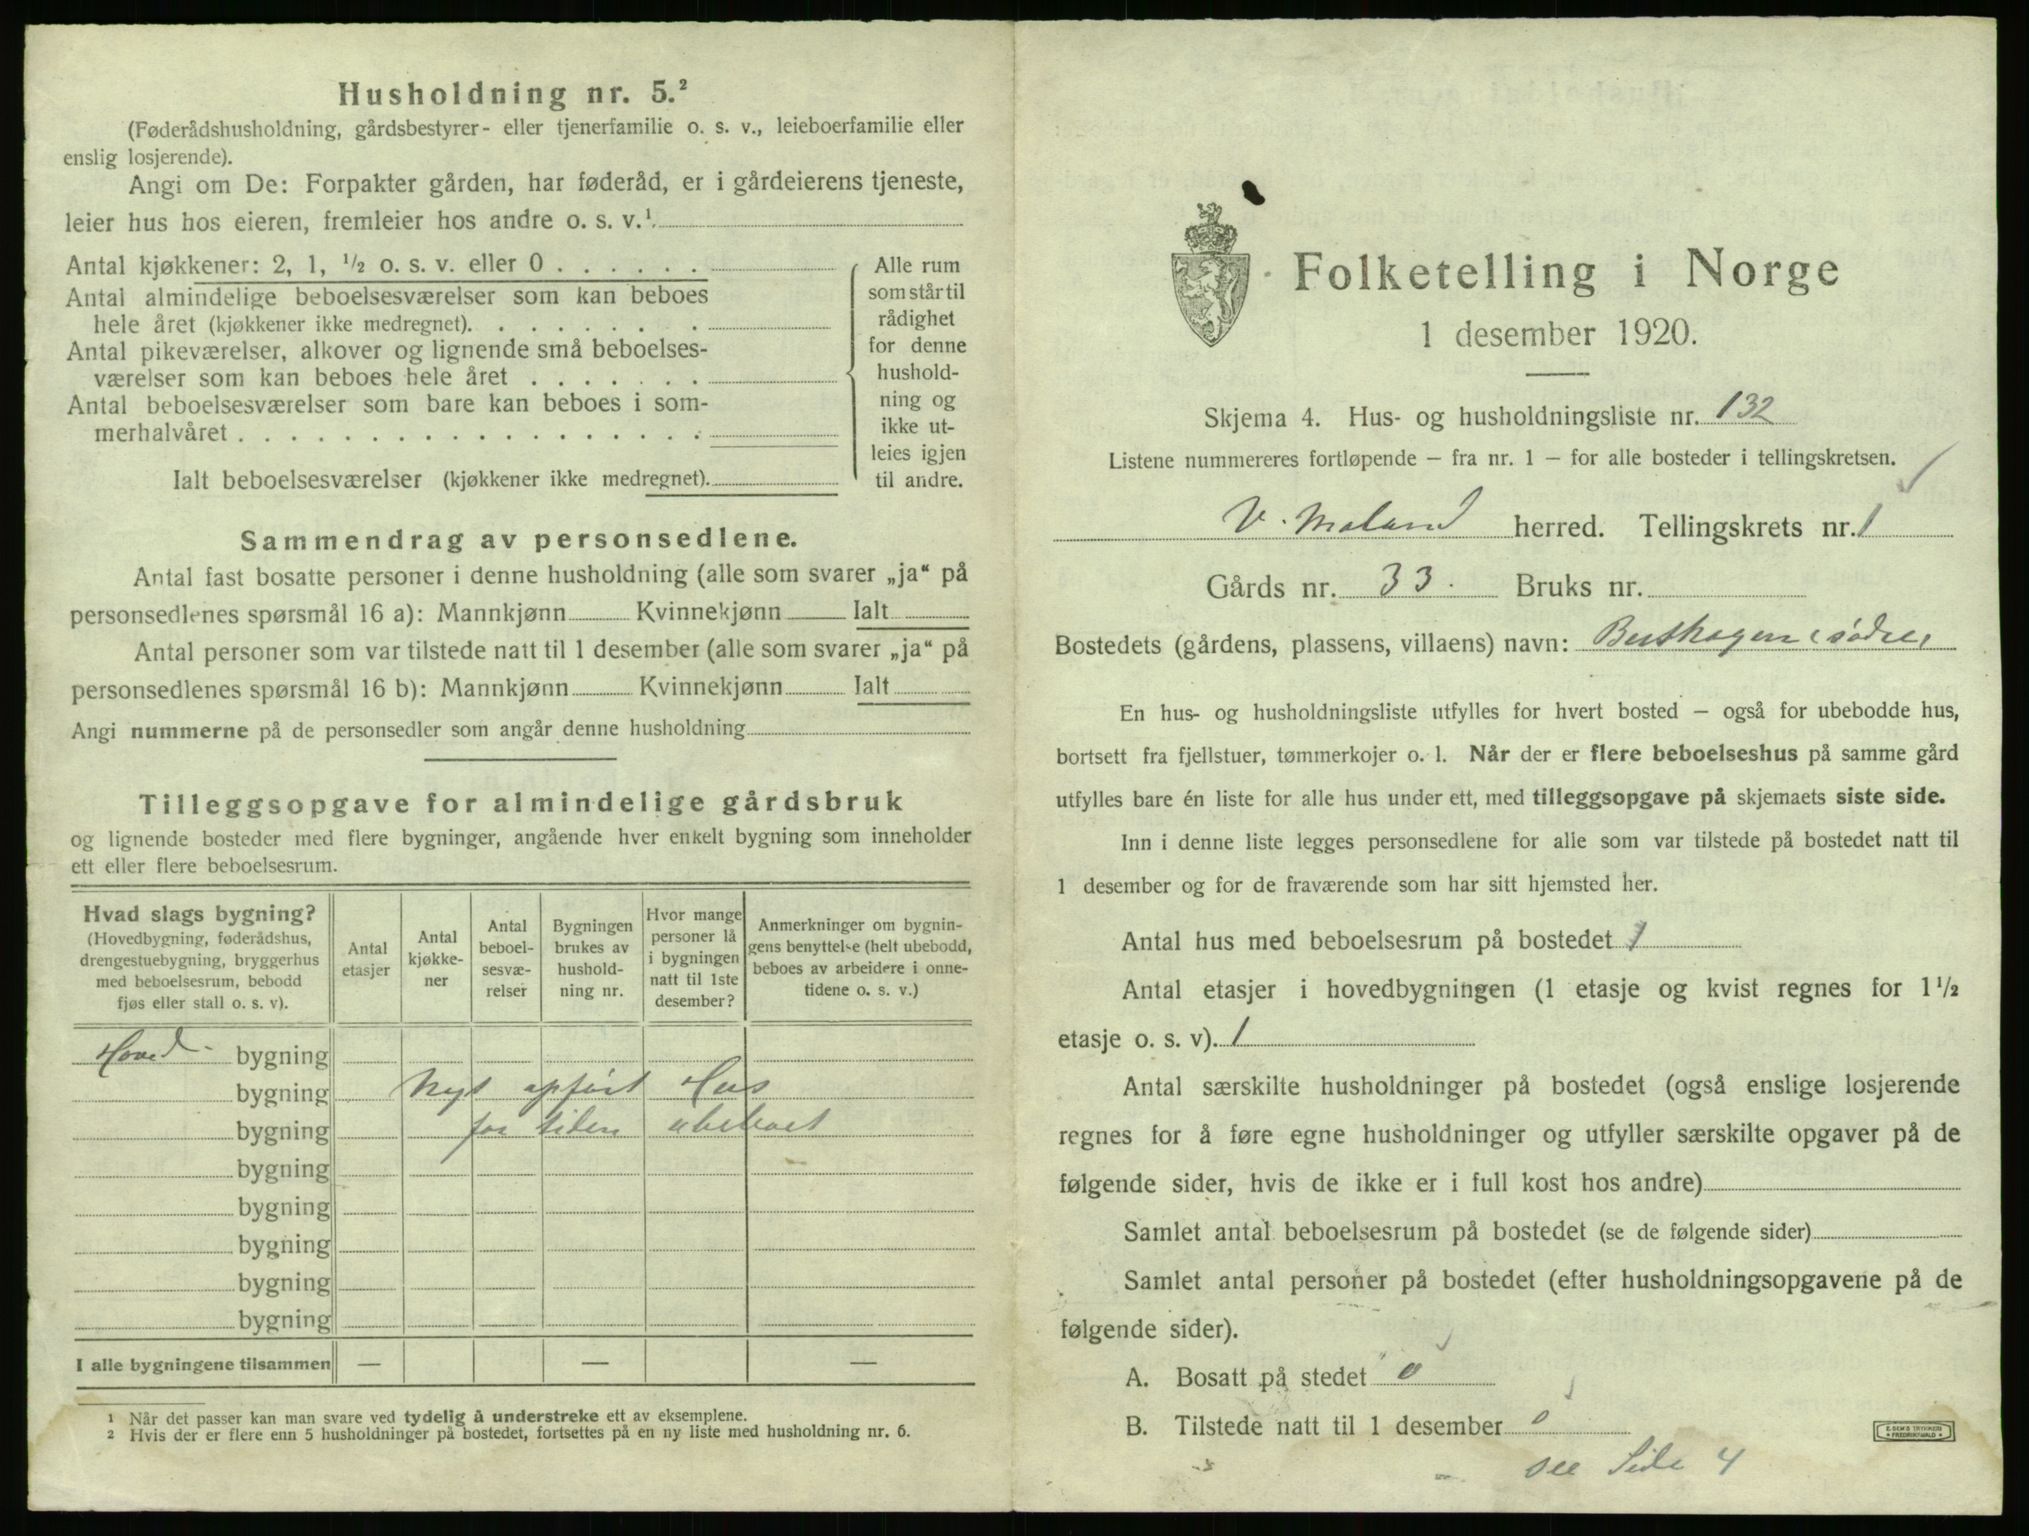 Husholdning nr. 5.²
(Føderådshusholdning, gårdsbestyrer- eller tjenerfamilie o. s. v., leieboerfamilie eller
enslig losjerende).
Angi om De: Forpakter gården, har føderåd, er i gårdeierens tjeneste,
leier hus hos eieren, fremleier hos andre o. s. v.¹.
Antal kjøkkener: 2, 1, ¹/₂ o. s. v. eller 0 . . . . . .
Antal almindelige beboelsesværelser som kan beboes
hele året (kjøkkener ikke medregnet). . . . . . . . .
Antal pikeværelser, alkover og lignende små beboelses-
værelser som kan beboes hele året . . . . . . .
Antal beboelsesværelser som bare kan beboes i som-
merhalvåret . . . . . . . . . . . . . . . . . .
Ialt beboelsesværelser (kjøkkener ikke medregnet).
Alle rum
som står til
rådighet
for denne
hushold-
ning og
ikke ut-
leies igjen
til andre.
Sammendrag av personsedlene.
Antal fast bosatte personer i denne husholdning (alle som svarer „ja“ på
personsedlenes spørsmål 16 a): Mannkjønn Kvinnekjønn Ialt
Antal personer som var tilstede natt til 1 desember (alle som svarer „ja“ på
personsedlenes spørsmål 16 b): Mannkjønn Kvinnekjønn Ialt
Angi nummerne på de personsedler som angår denne husholdning
Tilleggsopgave for almindelige gårdsbruk
og lignende bosteder med flere bygninger, angående hver enkelt bygning som inneholder
ett eller flere beboelsesrum.
Hvad slags bygning?
(Hovedbygning, føderådshus,
drengestuebygning, bryggerhus
med beboelsesrum, bebodd
fjøs eller stall o. s. v).
Antal
etasjer
Antal
kjøkke-
ner
Antal
beboel-
sesvæ-
relser
Bygningen
brukes av
hushold-
ning nr.
Hvor mange
personer lå
i bygningen
natt til 1ste
desember?
Anmerkninger om bygnin-
gens benyttelse (helt ubebodd,
beboes av arbeidere i onne-
tidene o. s. v.)
Hoved- bygning
bygning Nyt opført Hus
bygning for tiden ubeboet
bygning
bygning
bygning
bygning
bygning
I alle bygningene tilsammen — — —
1 Når det passer kan man svare ved tydelig å understreke ett av eksemplene.
2 Hvis der er flere enn 5 husholdninger på bostedet, fortsettes på en ny liste med husholdning nr. 6.
Folketelling i Norge
1 desember 1920.
Skjema 4. Hus- og husholdningsliste nr. 132
Listene nummereres fortløpende — fra nr. 1 — for alle bosteder i tellingskretsen.
V. Moland herred. Tellingskrets nr. 1
Gårds nr. 33. Bruks nr.
Bostedets (gårdens, plassens, villaens) navn: sødre
En hus- og husholdningsliste utfylles for hvert bosted — også for ubebodde hus,
bortsett fra fjellstuer, tømmerkojer o. l. Når der er flere beboelseshus på samme gård
utfylles bare én liste for alle hus under ett, med tilleggsopgave på skjemaets siste side.
Inn i denne liste legges personsedlene for alle som var tilstede på bostedet natt til
1 desember og for de fraværende som har sitt hjemsted her.
Antal hus med beboelsesrum på bostedet 1
Antal etasjer i hovedbygningen (1 etasje og kvist regnes for 1¹/₂
etasje o. s. v). 1
Antal særskilte husholdninger på bostedet (også enslige losjerende
regnes for å føre egne husholdninger og utfyller særskilte opgaver på de
følgende sider, hvis de ikke er i full kost hos andre)
Samlet antal beboelsesrum på bostedet (se de følgende sider)
Samlet antal personer på bostedet (efter husholdningsopgavene på de
følgende sider).
A. Bosatt på stedet 0
B. Tilstede natt til 1 desember 0
see Side 4